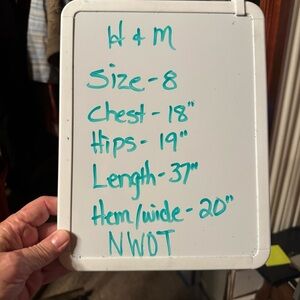 H & M
Size - 8
Chest - 18"
Hips - 19"
Length - 37"
Hem/wide - 20"
NWOT